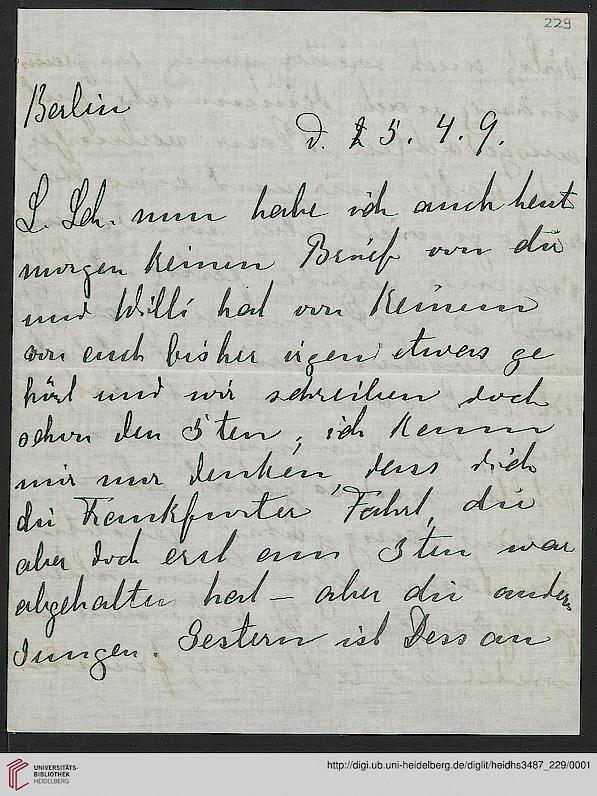 229
Berlin
d. 25. 4. 9.
L. Sch. nun habe ich auch heut
morgen keinen Brief von dir
und Willi hat von keinem
von euch bisher irgend etwas ge
hört und wir schreiben doch
schon den 5ten, ich kann
mir nur denken, dass dich
die Frankfurter Fahrt, die
aber doch erst am 3ten war
abgehalten hat – aber die andern
Jungen. Gestern ist Dessau
UNIVERSITÄTS-
BIBLIOTHEK
HEIDELBERG
http://digi.ub.uni-heidelberg.de/diglit/heidhs3487_229/0001